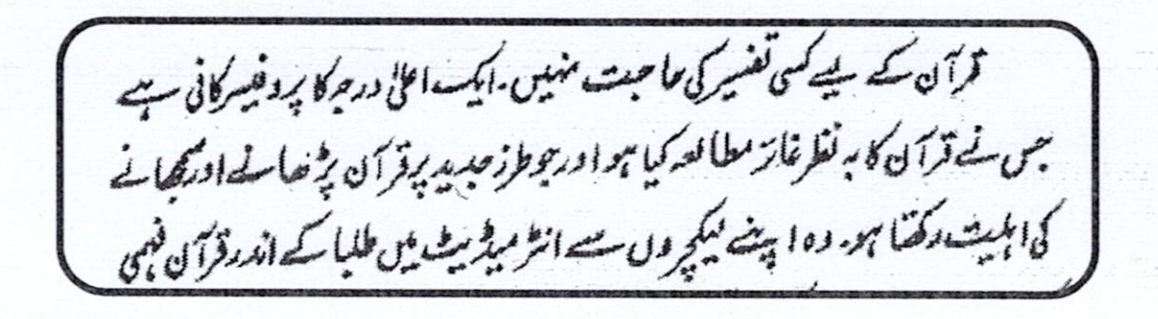 قرآن کے لیے کسی تفسیر کی حاجت نہیں۔ ایک اعلیٰ درجہ کا پروفیسر کافی ہے
جس نے قرآن کا بہ نظر غائر مطالعہ کیا ہو اور جو طرز جدید پر قرآن پڑھانے اور سمجھانے
کی اہلیت رکھتا ہو۔ وہ اپنے لیکچروں سے انٹرمیڈیٹ میں طلبا کے اندر قرآن فہمی